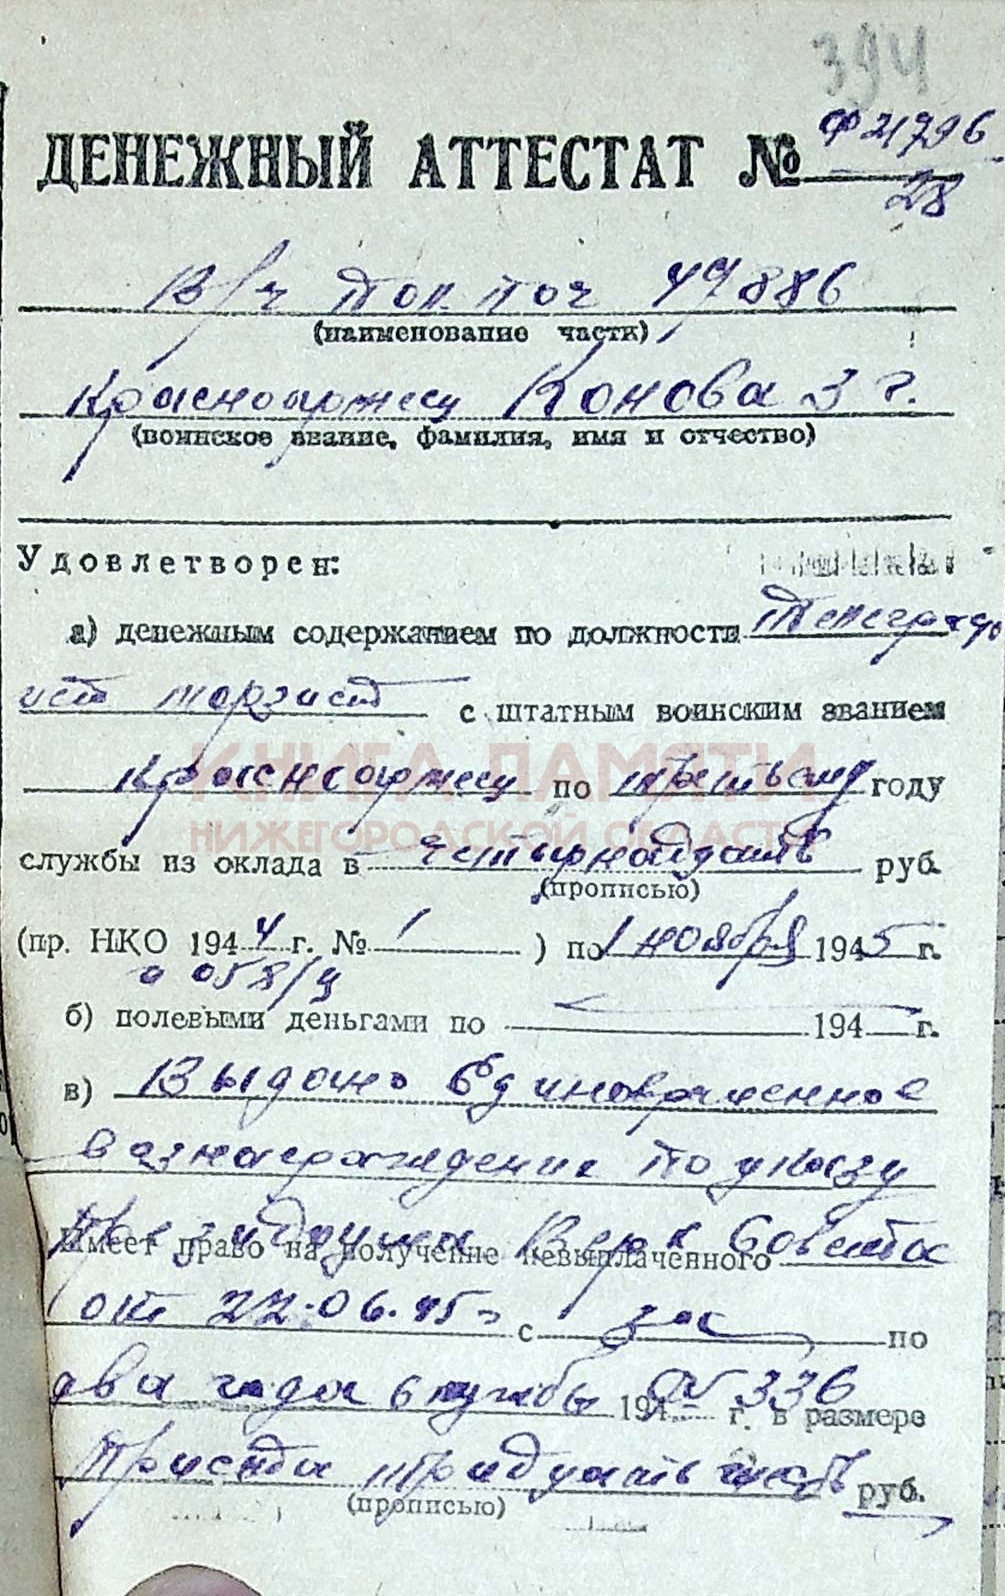 394
ДЕНЕЖНЫЙ АТТЕСТАТ № Ф 21796
28
В/ч пол. поч 47886
(наименование части)
Красноармеец Конова З Г.
(воинское звание, фамилия, имя и отчество)
Удовлетворен:
а) денежным содержанием по должности Телеграф
ист морзист с штатным воинским званием
Красноармеец по третьему году
КНИГА ПАМЯТИ
НИЖЕГОРОДСКОЙ ОБЛАСТИ
службы из оклада в четырнадцать руб.
(прописью)
(пр. НКО 1944 г. № 1 ) по 1 ноября 1945 г.
б) полевыми деньгами по 194 г.
в) Выдано Единовременное
вознаграждение по указу
Президиума Верх Совета
Имеет право на получение невыплаченного
от 22.06.45г с за по
два года службы 336
194 г. в размере
Триста тридцать шесть руб.
(прописью)